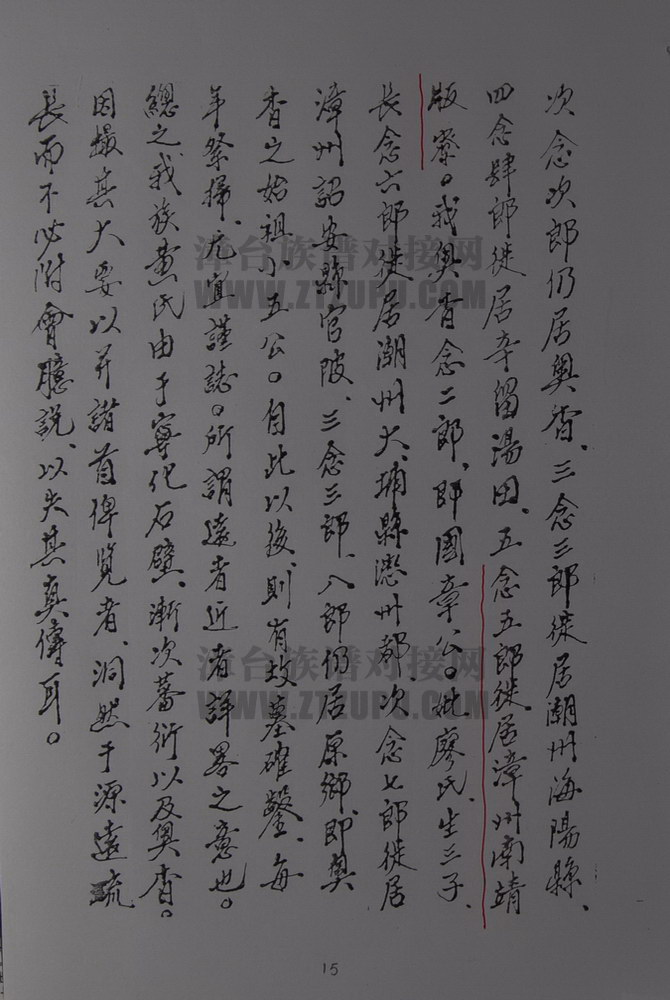 次念次郎仍居奥杳、三念三郎徙居潮州海陽縣、
四念肆郎徙居辛留湯田、五念五郎徙居漳州南靖
版寮。我奥杳念二郎、即國章公。妣廖氏、生三子、
長念六郎徙居潮州大埔縣漳州都、次念七郎徙居
漳州詔安縣官陂、三念三郎、八郎仍居原鄉、即奥
杳之始祖小五公。自此以後、則有故墓確鑿、每
年祭掃、尤宜謹誌。所謂遠者近者詳畧之意也。
總之我族黄氏由于寧化石壁、漸次蕃衍以及奥杳。
因撮其大要以弁譜首俾覽者、洞然于源遠疏
長而不必附會臆説、以失其真傳耳。
漳台族谱对接网
WWW.ZTZUPU.COM
漳台族谱对接网
WWW.ZTZUPU.COM
15